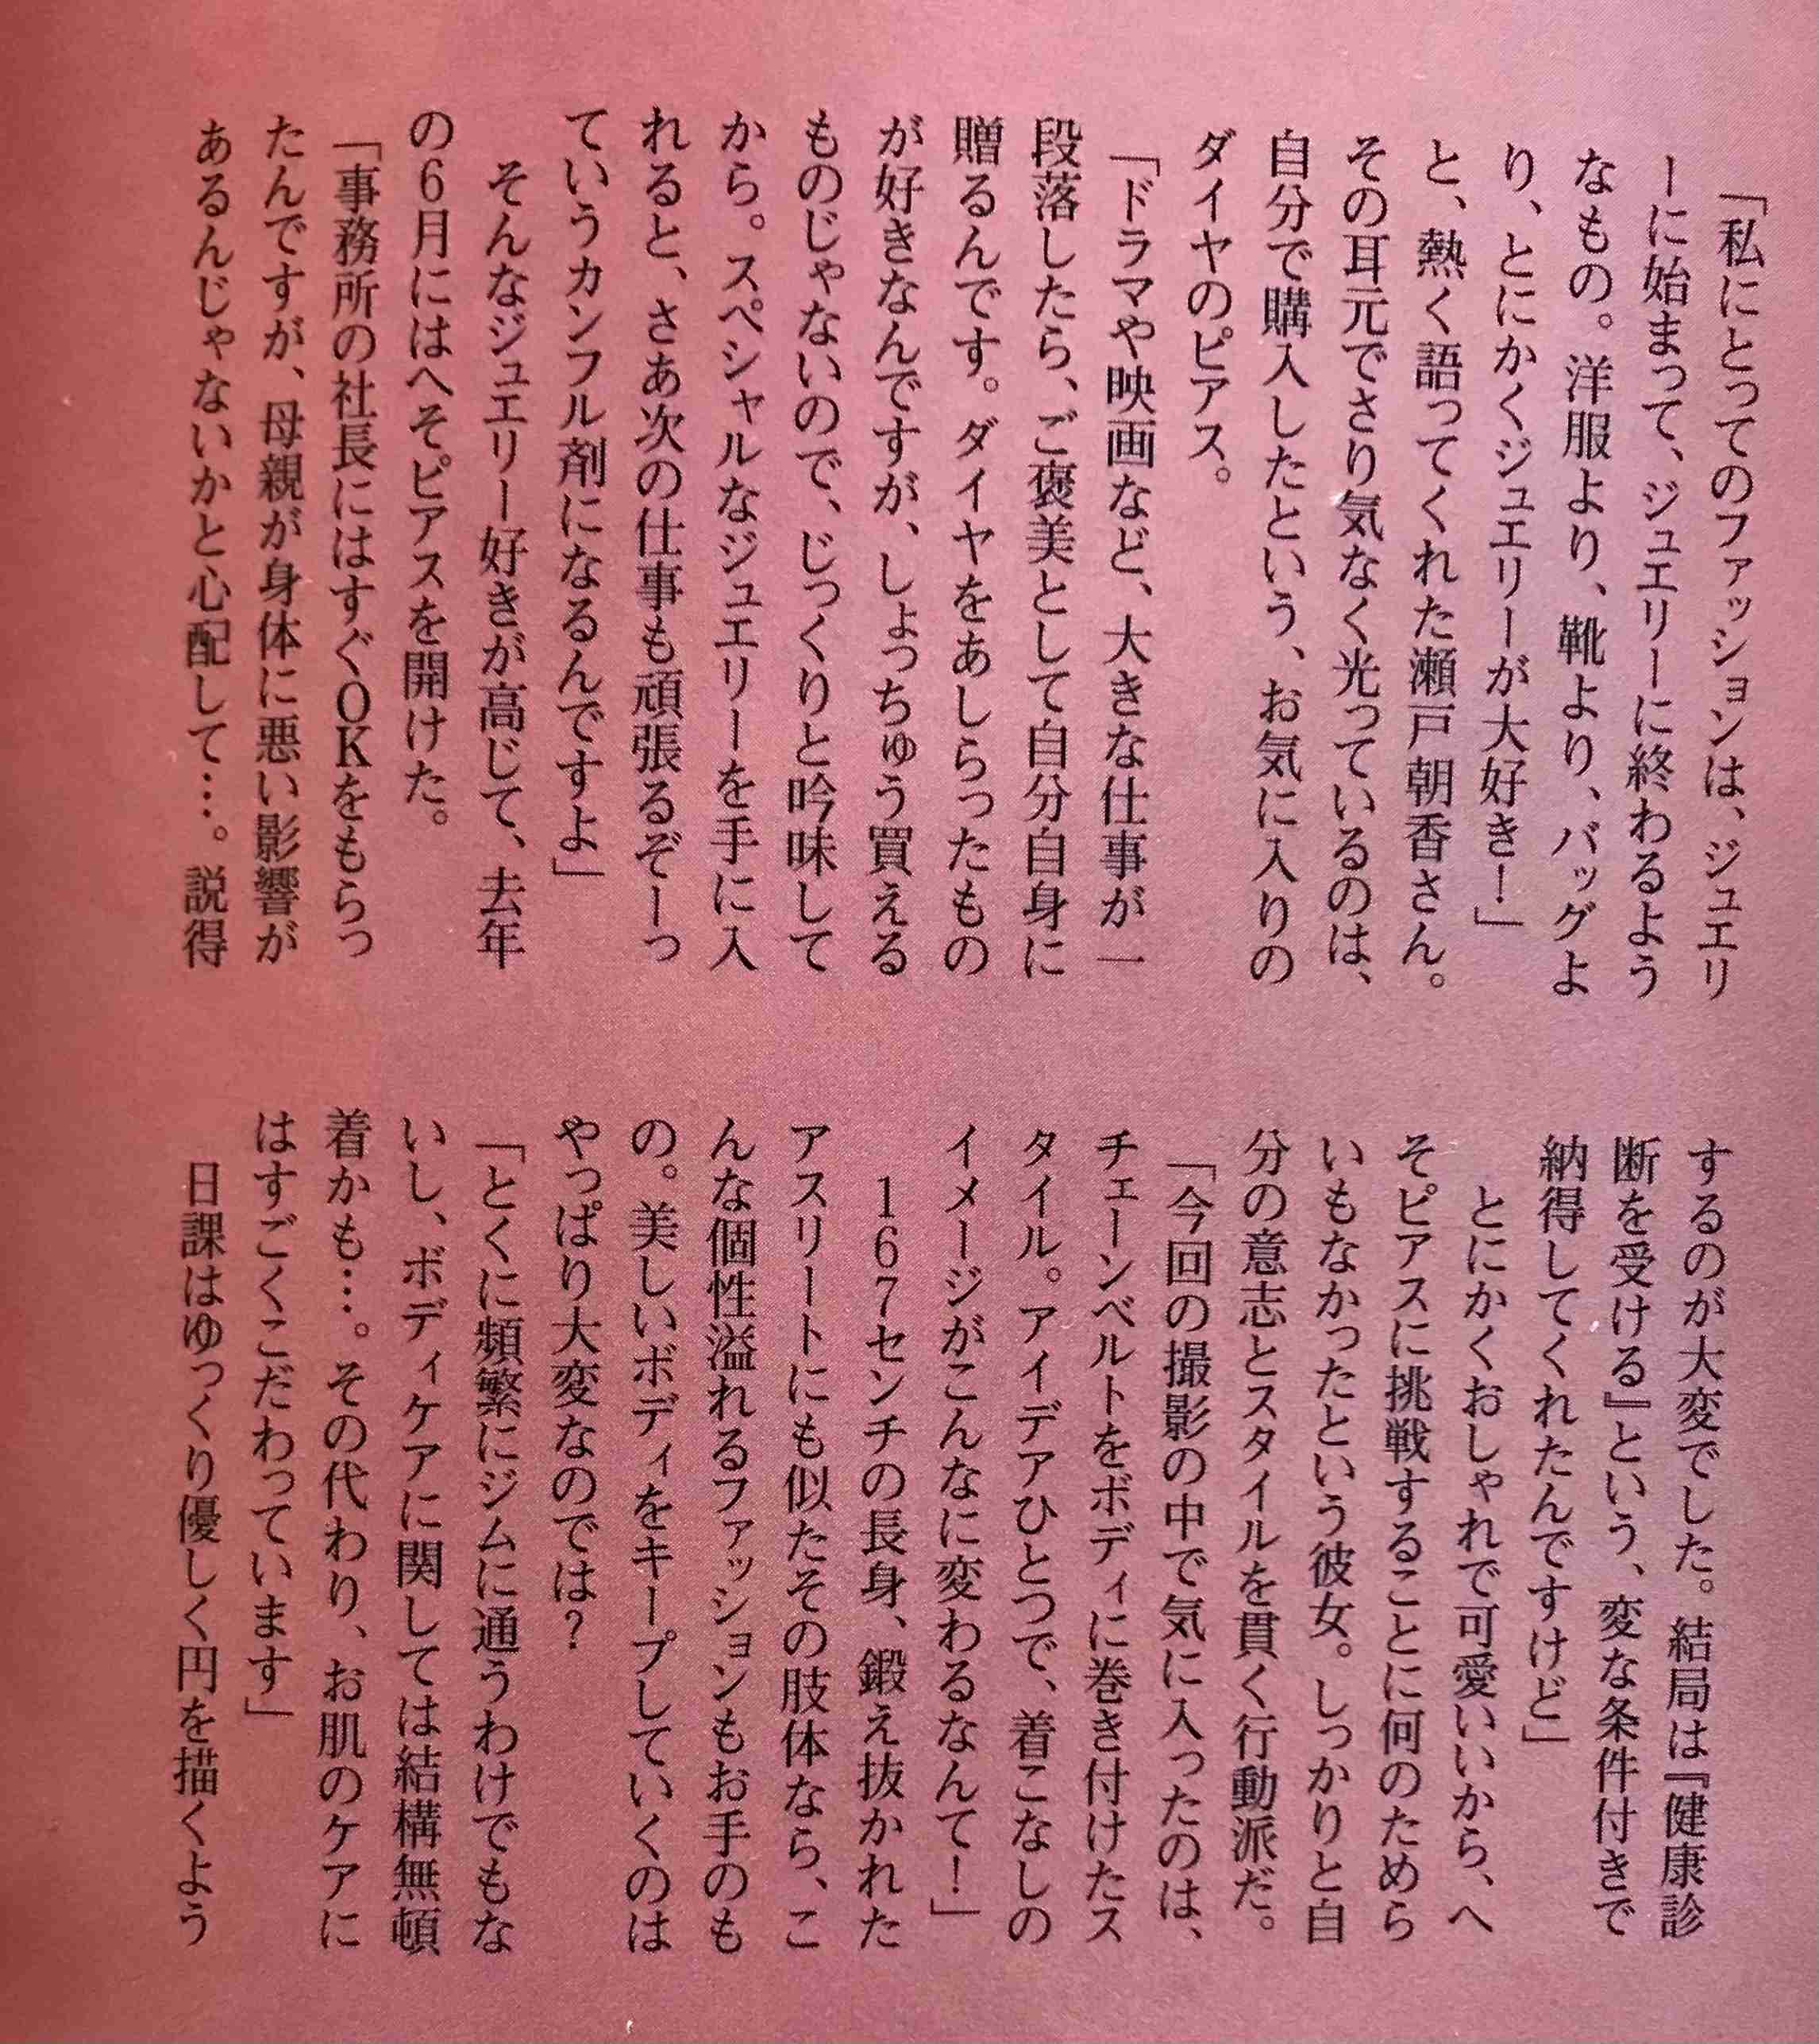 「私にとってのファッションは、ジュエリ
ーに始まって、ジュエリーに終わるよう
なもの。洋服より、靴より、バッグよ
り、とにかくジュエリーが大好き！」
と、熱く語ってくれた瀬戸朝香さん。
その耳元でさり気なく光っているのは、
自分で購入したという、お気に入りの
ダイヤのピアス。
「ドラマや映画など、大きな仕事が一
段落したら、ご褒美として自分自身に
贈るんです。ダイヤをあしらったもの
が好きなんですが、しょっちゅう買える
ものじゃないので、じっくりと吟味して
から。スペシャルなジュエリーを手に入
れると、さあ次の仕事も頑張るぞーっ
ていうカンフル剤になるんですよ」
そんなジュエリー好きが高じて、去年
の6月にはへそピアスを開けた。
「事務所の社長にはすぐOKをもらっ
たんですが、母親が身体に悪い影響が
あるんじゃないかと心配して…。説得
するのが大変でした。結局は『健康診
断を受ける』という、変な条件付きで
納得してくれたんですけど」
とにかくおしゃれで可愛いいから、へ
そピアスに挑戦することに何のためら
いもなかったという彼女。しっかりと自
分の意志とスタイルを貫く行動派だ。
「今回の撮影の中で気に入ったのは、
チェーンベルトをボディに巻き付けたス
タイル。アイデアひとつで、着こなしの
イメージがこんなに変わるなんて！」
167センチの長身、鍛え抜かれた
アスリートにも似たその肢体なら、こ
んな個性溢れるファッションもお手のも
の。美しいボディをキープしていくのは
やっぱり大変なのでは？
「とくに頻繁にジムに通うわけでもな
いし、ボディケアに関しては結構無頓
着かも…。その代わり、お肌のケアに
はすごくこだわっています」
日課はゆっくり優しく円を描くよう